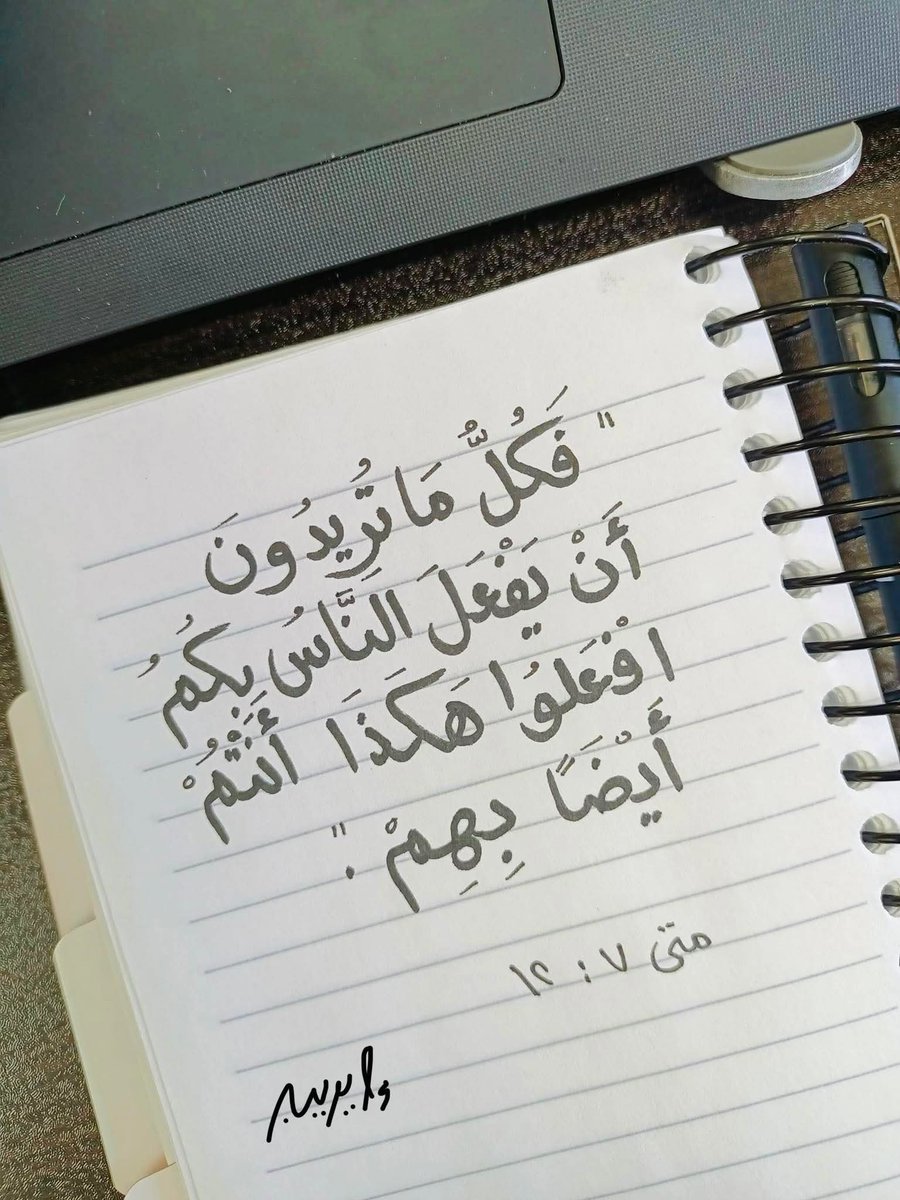 " فَكُلُّ مَا تُرِيدُونَ
أَنْ يَفْعَلَ النَّاسُ بِكُمُ
افْعَلُوا هَكَذَا أَنْتُمْ
أَيْضًا بِهِمْ ."
متى ٧ : ١٢